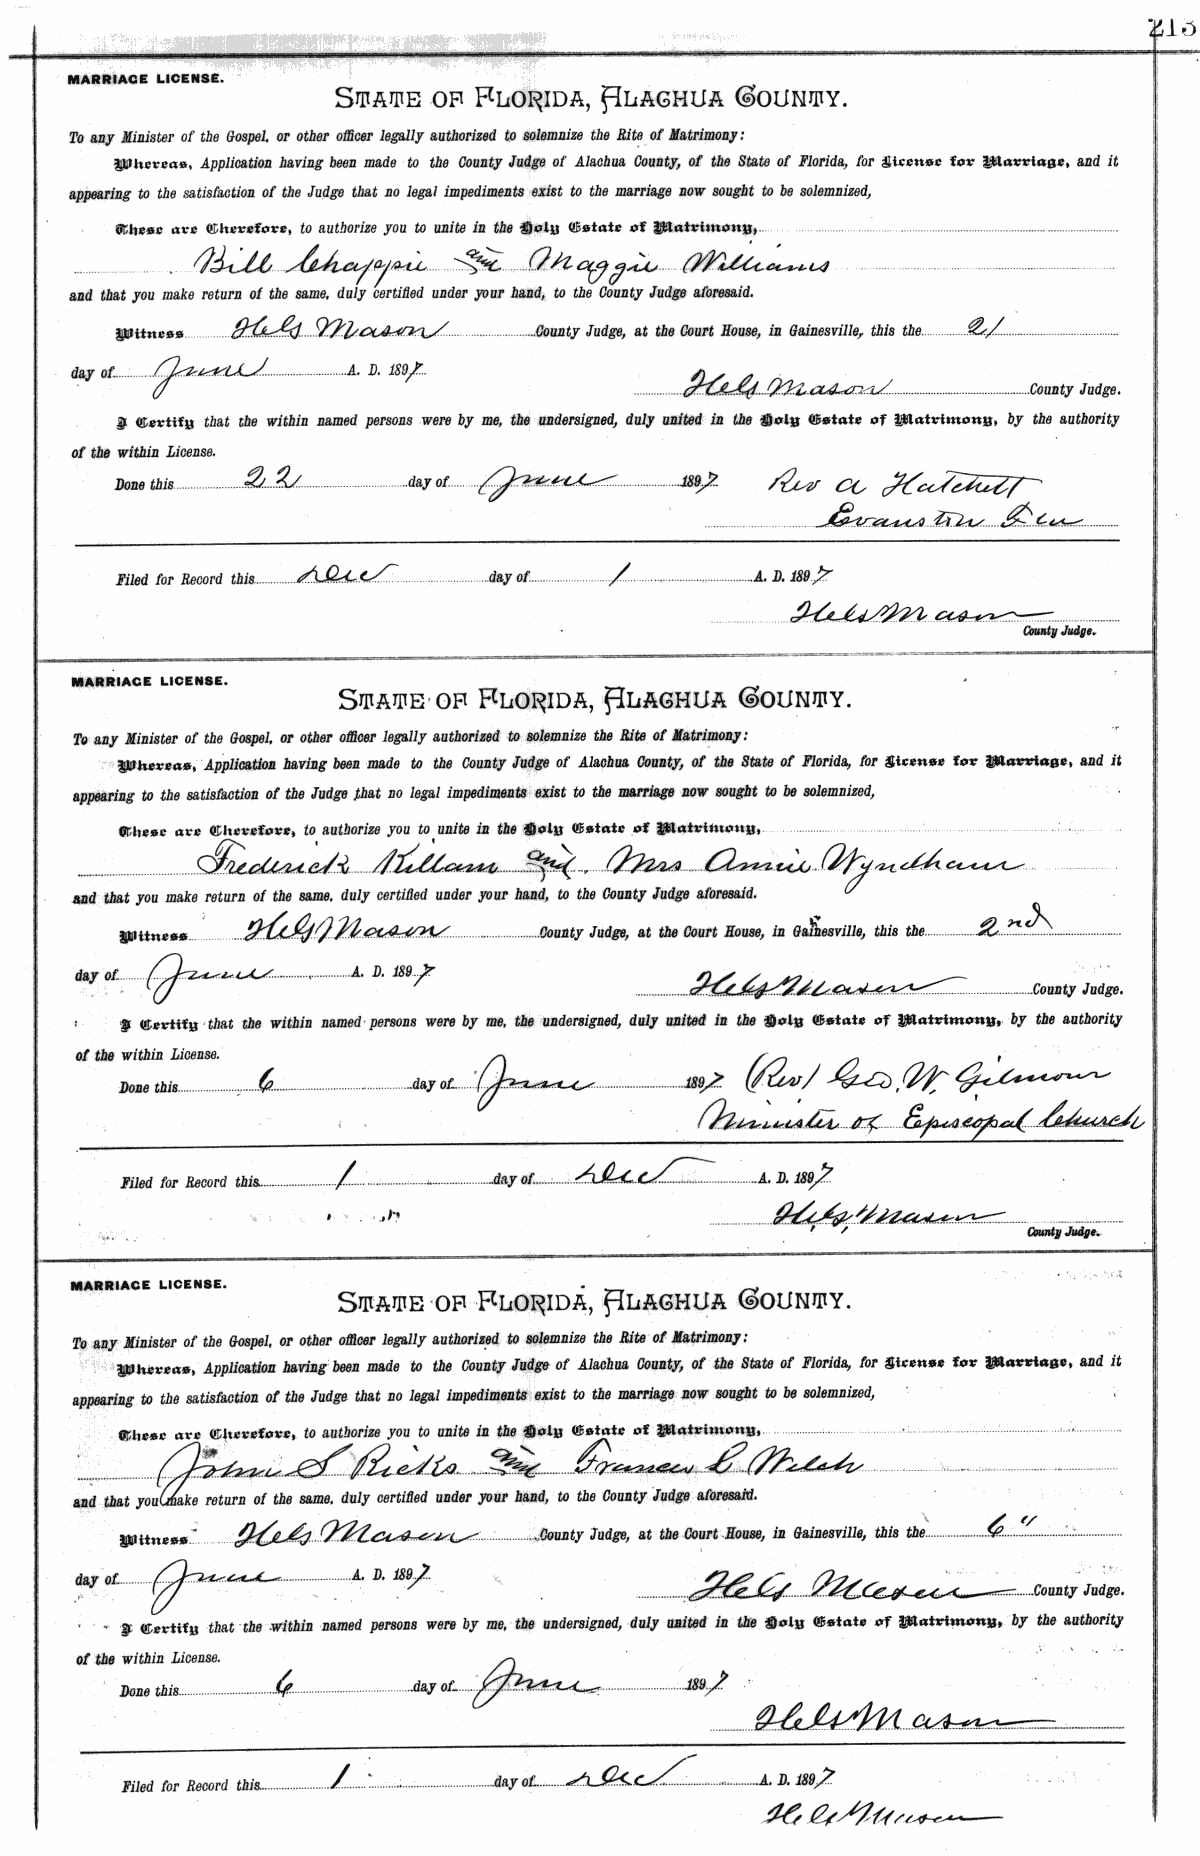 213
MARRIAGE LICENSE.
STATE OF FLORIDA, ALACHUA COUNTY.
To any Minister of the Gospel, or other officer legally authorized to solemnize the Rite of Matrimony:
Whereas, Application having been made to the County Judge of Alachua County, of the State of Florida, for License for Marriage, and it
appearing to the satisfaction of the Judge that no legal impediments exist to the marriage now sought to be solemnized,
These are Therefore, to authorize you to unite in the Holy Estate of Matrimony,
Bill Chappie and Maggie Williams
and that you make return of the same, duly certified under your hand, to the County Judge aforesaid.
Witness Mason County Judge, at the Court House, in Gainesville, this the 21
day of June A. D. 1897
Mason County Judge.
I Certify that the within named persons were by me, the undersigned, duly united in the Holy Estate of Matrimony, by the authority
of the within License.
Done this 22 day of June 1897 Rev A Hatchett
Evanston Fla
Filed for Record this Dec day of 1 A. D. 1897
Mason
County Judge.
MARRIAGE LICENSE.
STATE OF FLORIDA, ALACHUA COUNTY.
To any Minister of the Gospel, or other officer legally authorized to solemnize the Rite of Matrimony:
Whereas, Application having been made to the County Judge of Alachua County, of the State of Florida, for License for Marriage, and it
appearing to the satisfaction of the Judge that no legal impediments exist to the marriage now sought to be solemnized,
These are Therefore, to authorize you to unite in the Holy Estate of Matrimony,
Frederick Killam and Mrs Annie Wyndham
and that you make return of the same, duly certified under your hand, to the County Judge aforesaid.
Witness Mason County Judge, at the Court House, in Gainesville, this the 2nd
day of June A. D. 1897
Mason County Judge.
I Certify that the within named persons were by me, the undersigned, duly united in the Holy Estate of Matrimony, by the authority
of the within License.
Done this 6 day of June 1897 (Rev) Geo. W. Gilmour
Minister of Episcopal Church
Filed for Record this 1 day of Dec A. D. 1897
Mason
County Judge.
MARRIAGE LICENSE.
STATE OF FLORIDA, ALACHUA COUNTY.
To any Minister of the Gospel, or other officer legally authorized to solemnize the Rite of Matrimony:
Whereas, Application having been made to the County Judge of Alachua County, of the State of Florida, for License for Marriage, and it
appearing to the satisfaction of the Judge that no legal impediments exist to the marriage now sought to be solemnized,
These are Therefore, to authorize you to unite in the Holy Estate of Matrimony,
John S Ricks and Frances C Welch
and that you make return of the same, duly certified under your hand, to the County Judge aforesaid.
Witness Mason County Judge, at the Court House, in Gainesville, this the 6"
day of June A. D. 1897
Mason County Judge.
I Certify that the within named persons were by me, the undersigned, duly united in the Holy Estate of Matrimony, by the authority
of the within License.
Done this 6 day of June 1897
Mason
Filed for Record this 1 day of Dec A. D. 1897
Mason